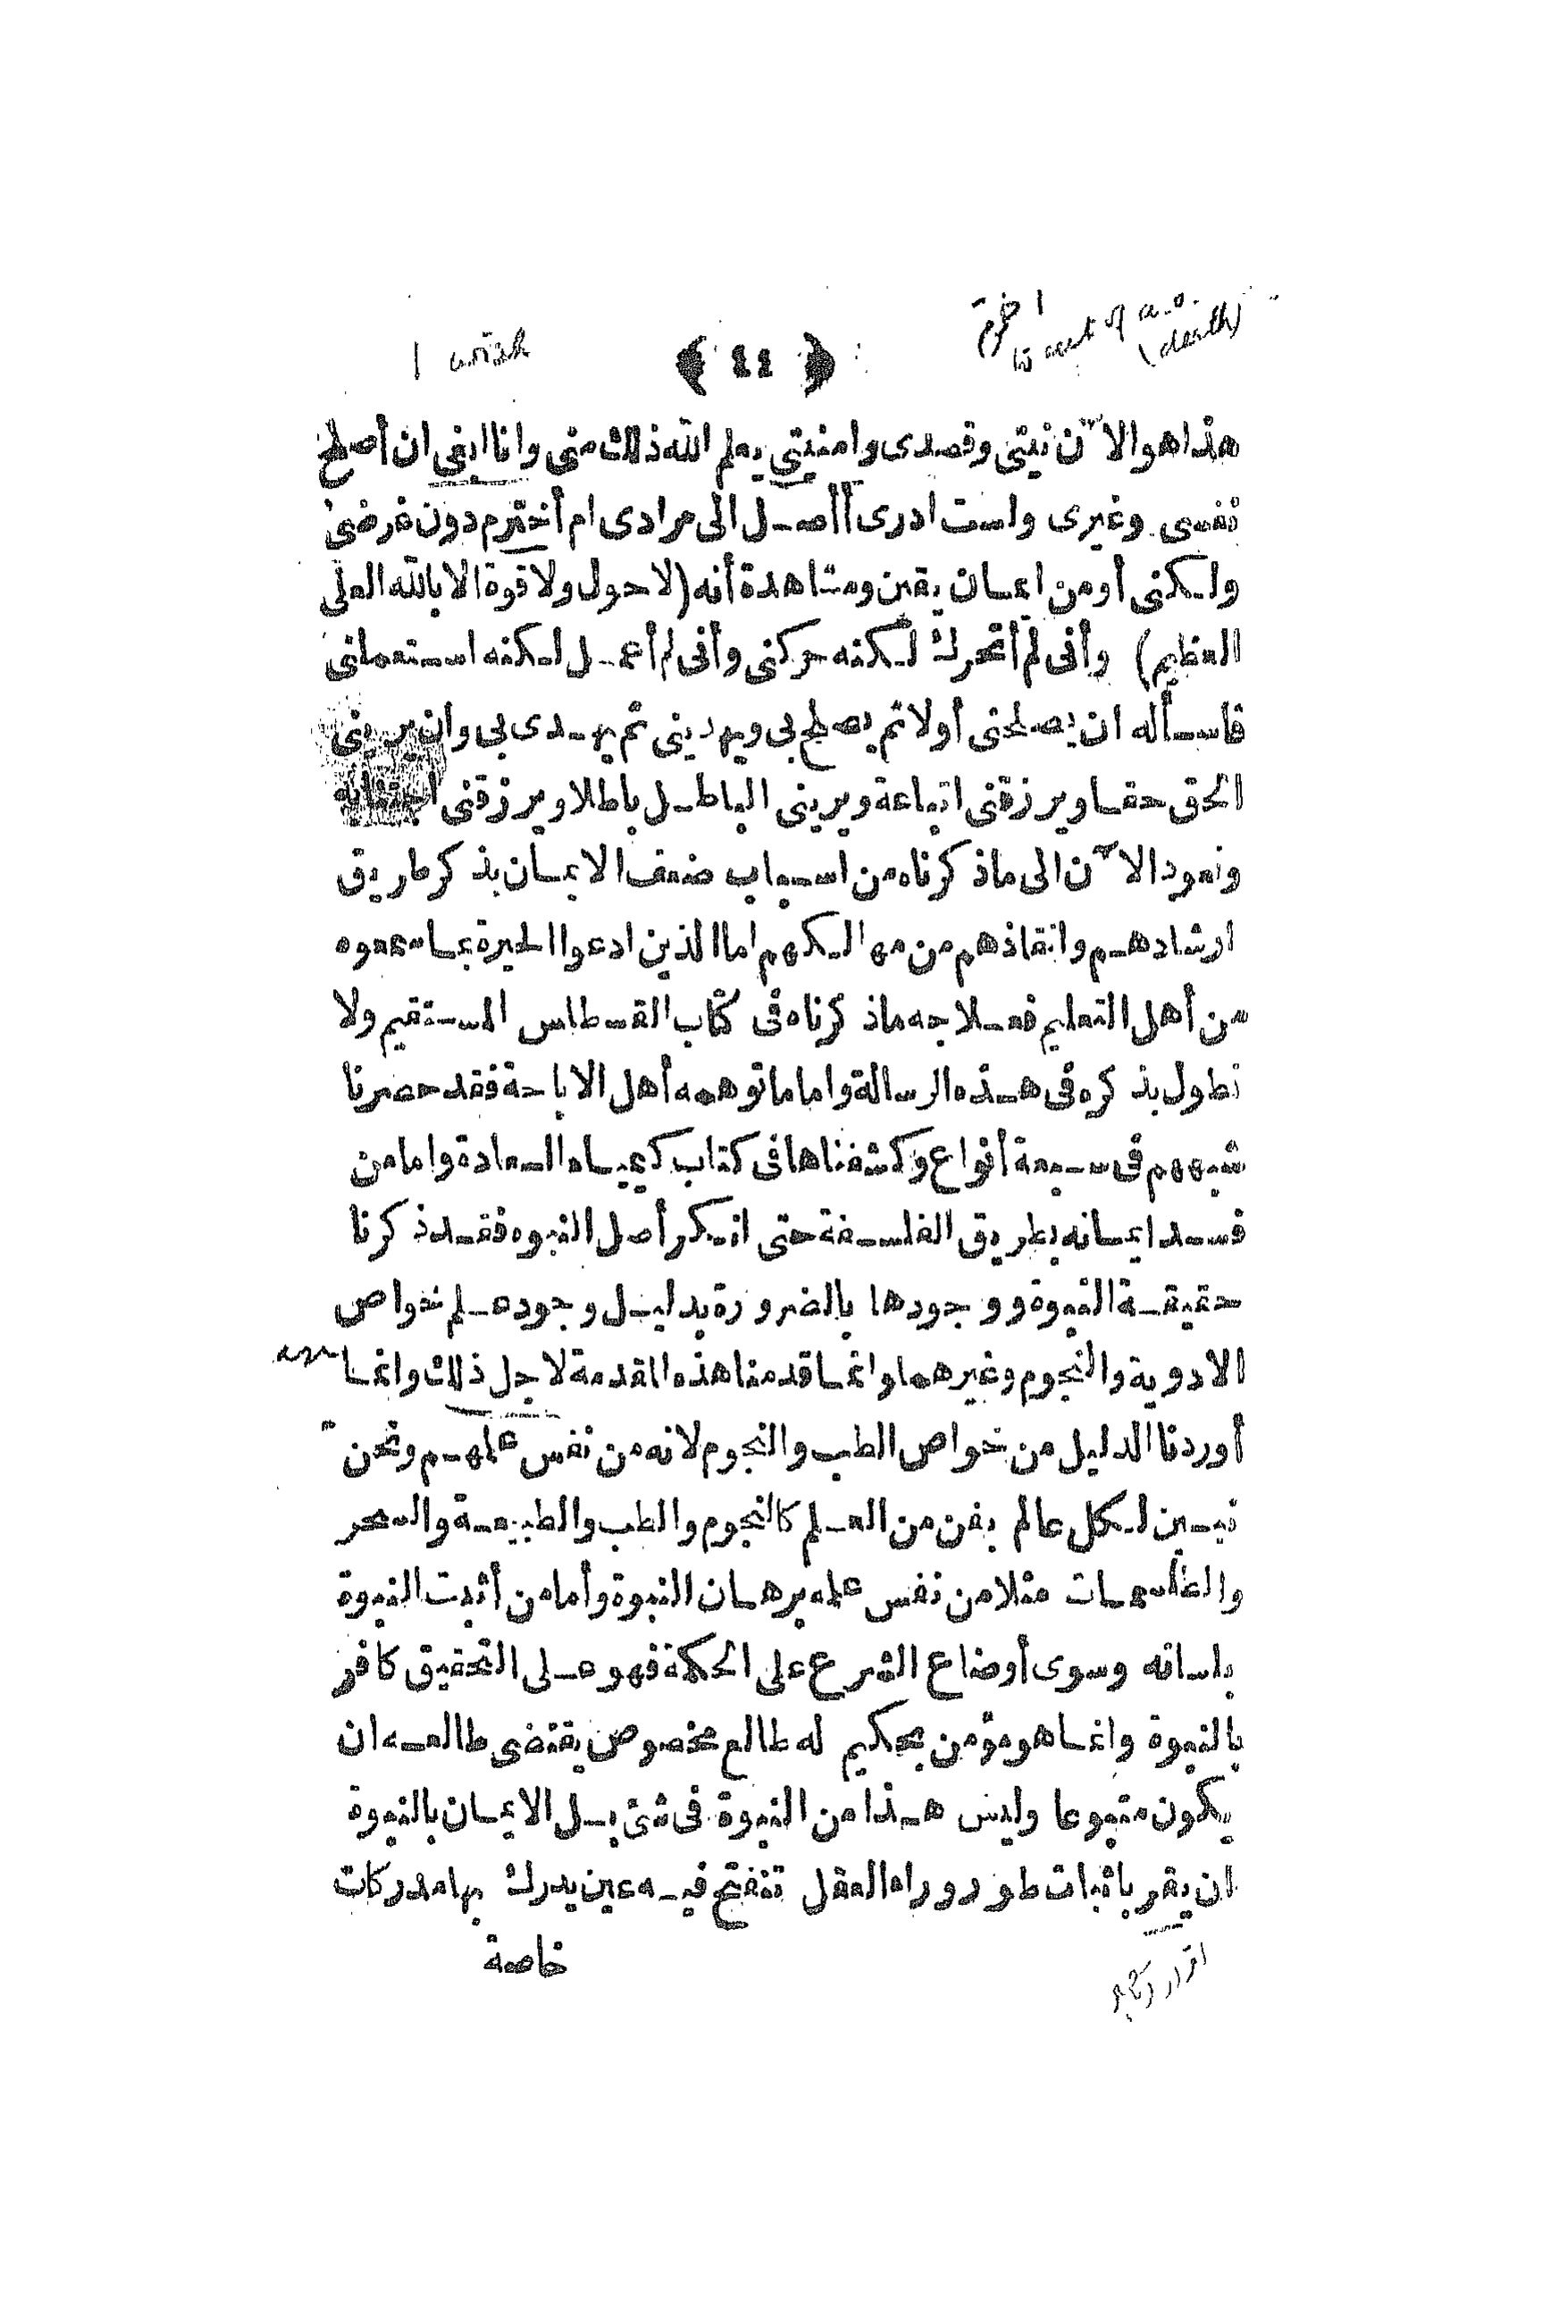 I wish
اخترم
(death)
﴿ ٤٤ ﴾
هذا هو الآن نيتى وقصدى وامنيتى يعلم الله ذلك منى وانا ابغى ان أصلح
نفسى وغيرى ولست ادرى أأصل الى مرادى ام أخترم دون غرضى
ولكنى أومن ايمان يقين ومشاهدة أنه (لا حول ولا قوة الا بالله العلى
العظيم) وأنى لم أتحرك لكنه حركنى وأنى لم أعمل لكنه استعملنى
فاسأله ان يصلحنى أولا ثم يصلح بى ويهدينى ثم يهدى بى وان يرينى
الحق حقا ويرزقنى اتباعة ويرينى الباطل باطلا ويرزقنى اجتنابه
ونعود الآن الى ماذكرناه من اسباب ضعف الايمان بذكر طريق
ارشادهم وانقاذهم من مهالكهم اما الذين ادعوا الحيرة بما سمعوه
من أهل التعليم فعلاجه ماذكرناه فى كتاب القسطاس المستقيم ولا
نطول بذكره فى هذه الرسالة واما ماتوهمه أهل الاباحة فقد حضرنا
شبههم فى سبعة أنواع وكشفناها فى كتاب كيمياء السعادة واما من
فسد ايمانه بطريق الفلسفة حتى انكر أصل النبوه فقد ذكرنا
حقيقة النبوة ووجودها بالضرورة بدليل وجود علم خواص
الادوية والنجوم وغيرهما وانما قدمنا هذه المقدمة لاجل ذلك وانما
أوردنا الدليل من خواص الطب والنجوم لانه من نفس علمهم ونحن
نبين لكل عالم بفن من العلم كالنجوم والطب والطبيعة والسحر
والطلسمات مثلا من نفس علمه برهان النبوة وأما من أثبت النبوة
بلسانه وسوى أوضاع الشرع على الحكمة فهو على التحقيق كافر
بالنبوة وانما هو مؤمن بحكيم له طالع مخصوص يقتضى طالعه ان
يكون متبوعا وليس هذا من النبوة فى شئ بل الايمان بالنبوة
ان يقر باثبات طور وراء العقل تنفتح فيه عين يدرك بها مدركات
خاصة